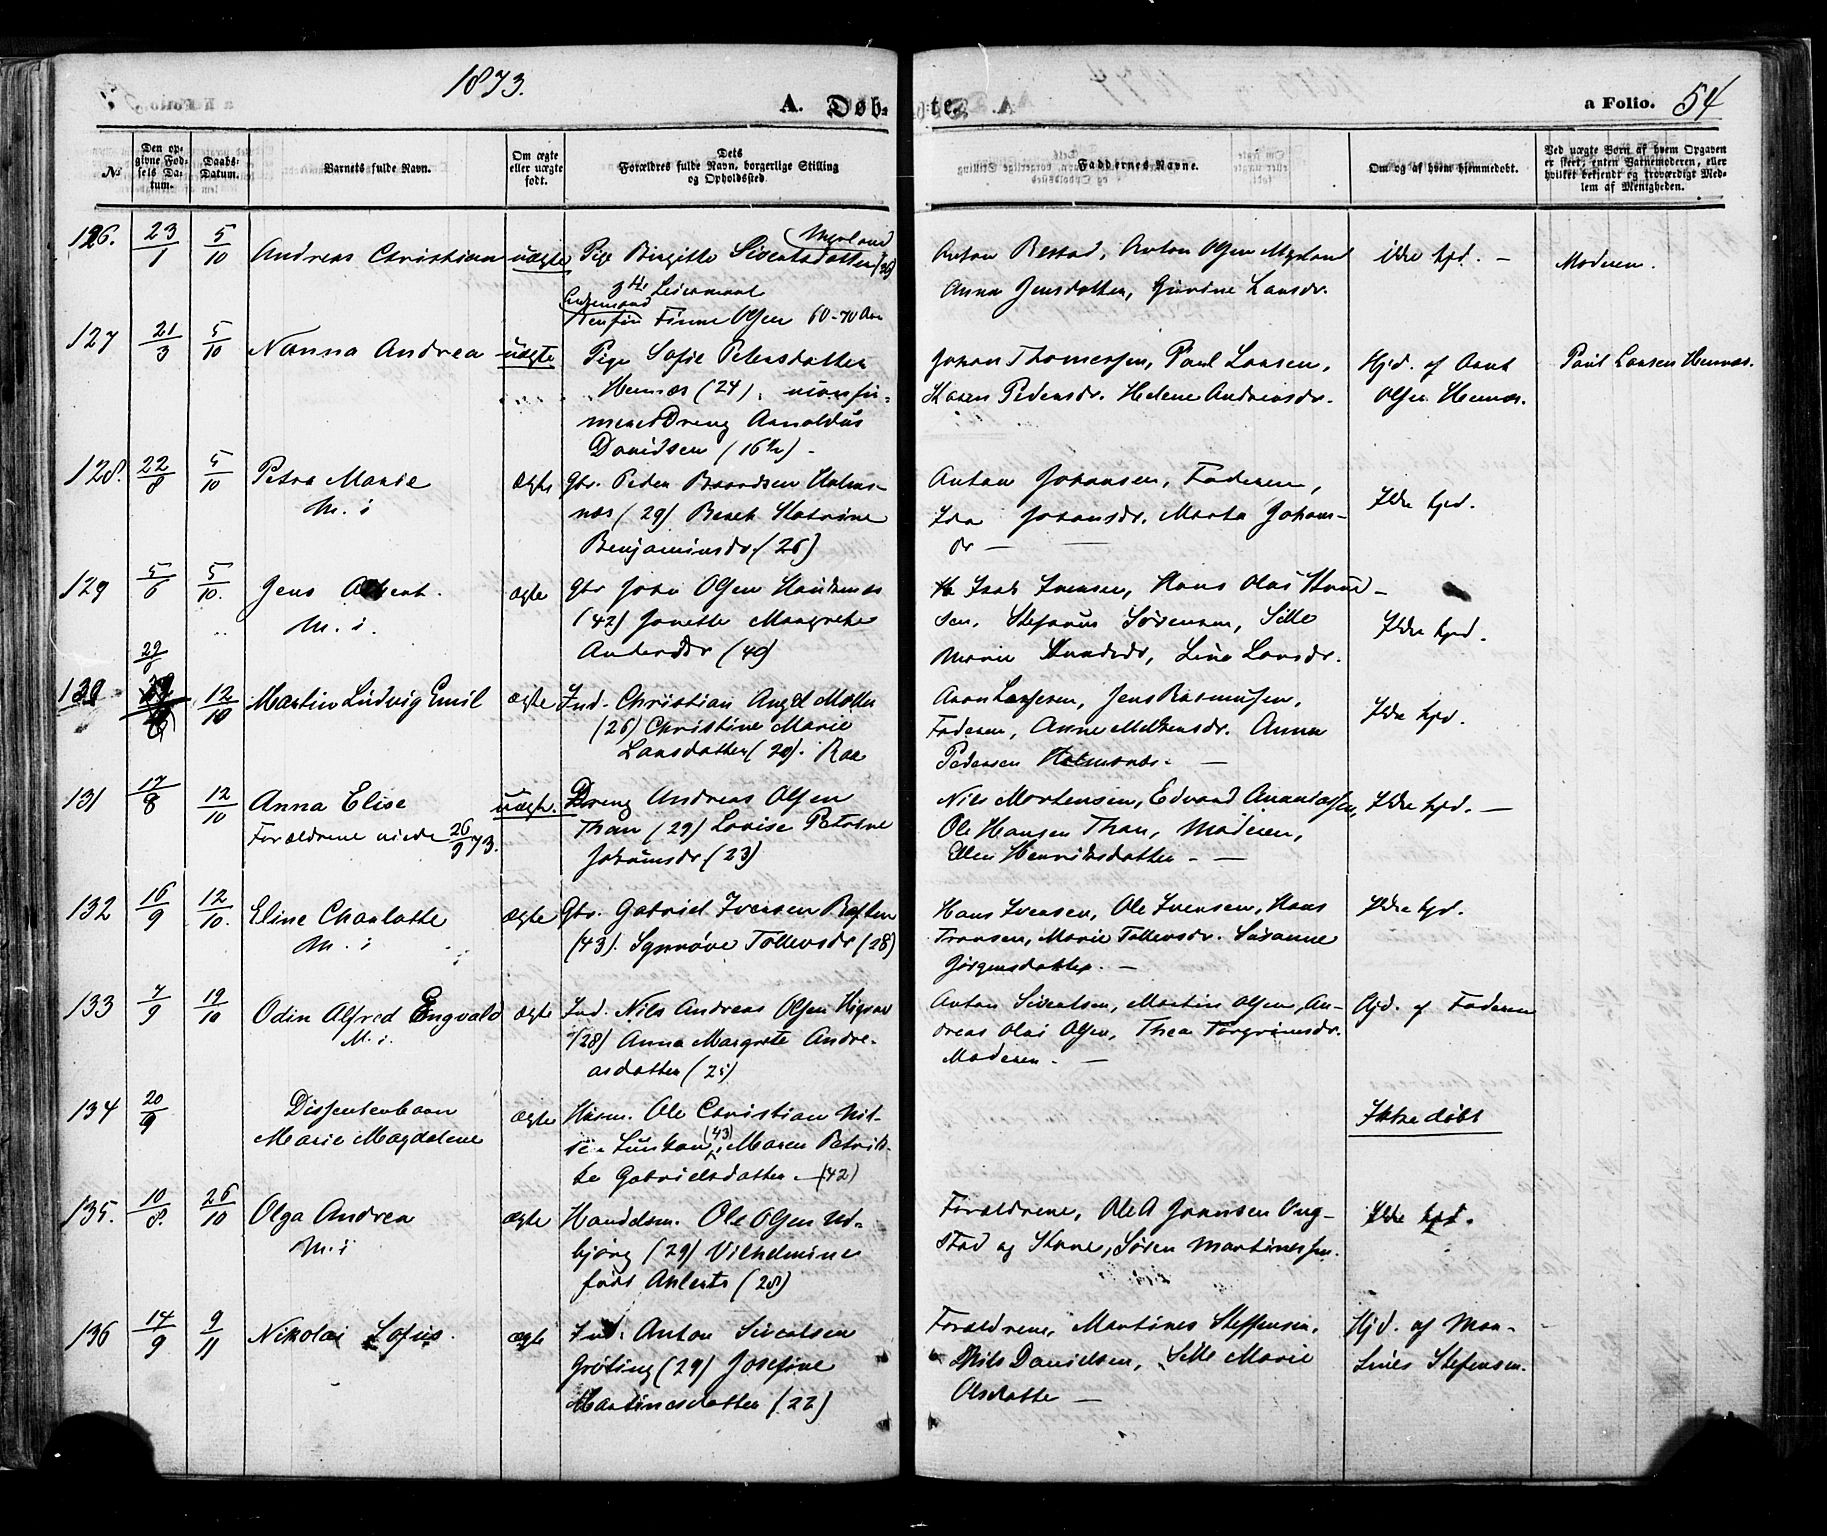 1873.
A. Døb-
te.
a Folio. 54
No
Den opgivne Fødsels Datum.
Daabs-Datum.
Barnets fulde Navn.
Om ægte eller uægte født.
Dets Forældres fulde Navn, borgerlige Stilling og Opholdssted.
Faddernes Navne.
Om og af hvem hjemmedøbt.
Ved uægte Børn af hvem Opgaven er skeet, enten Barnemoderen, eller hvilket bekjendt og troværdigt Medlem af Menigheden.
126. 23/1 5/10 Andreas Christian uægte Pige Birgitte Sivertsdatter
Anton Olsen ikke hjd. — Moderen.
Anna Jensdatter, Larsdr.
3die Leiermaal
Enkemand Finne Olsen 60-70 Aar
127 21/3 5/10 Nanna Andrea uægte Pige Sofie Petersdatter
Johan Thomessen, Paul Larsen, Hjd. af Arnt Paul Larsen Hemnæs.
Hemnæs (24), ukonfir-
Karen Pedersdr. Helene Andreasdr. Olsen Hemnæs.
meret Dreng Arnoldus
Davidsen (16½) -
128. 22/8 5/10 Petra Marie ægte Gbr. Peder Baardsen Holms-
Anton Johansen, Faderen, Ikke hjd.
M. i næs (29) Beret Katrine
Ida Johansdr. Marta Johans-
Benjaminsdr (26)
dr —
129 5/6 5/10. Jens Albert. ægte Gbr Johan Olsen
Isak Iversen, Hans Olai
M. i. (42) Janette Margrethe
sen, Stefanus Sørensen, Sille Ikke hjd.
Andersdr (40)
Marie Knudsdr, Line Larsdr.
130 12/10 Martin Ludvig Emil ægte Ind. Christian Angel Møller
Aron Larsen, Jens Rasmussen, Ikke hjd.
(26) Christine Marie
Faderen, Anne Mikkelsdr. Anna
Larsdatter (20). Raa
Pedersen Holmsnæs. —
131 17/8 12/10 Anna Elise uægte. Dreng Andreas Olsen
Nils Mortensen, Edvard Ananiassen, Ikke hjd. —
Forældrene viede 26/9 73. Than (29) Lovise Petrine
Ole Hansen Than, Moderen,
Johansdr (23)
Ellen Henriksdatter - —
132 16/9 12/10. Eline Charlotte ægte Gbr. Gabriel Iversen
Hans Iversen, Ole Iversen, Hans Ikke hjd.
M. i (43). Synnøve Tollevsdr (28)
Fransen, Marie Tollevsdr. Susanne
Jørgensdatter. —
133 7/9 19/10 Odin Alfred Engvald ægte Ind. Nils Andreas Olsen
Anton Sivertsen, Martin Olsen, An- Hjd. af Faderen
M. i. (28) Anna Margrete Andre-
dreas Olai Olsen, Thea Torgrimsdr.
asdatter (25)
Moderen - —
134 20/9 Dissenterbarn ægte Husm. Ole Christian Nil- Ikke døbt
Marie Magdalene sen (43), Maren Petrik-
ke Gabrielsdatter. - (42)
135. 10/8. 26/10 Olga Andrea ægte Handelsm. Ole Olsen Ud-
Forældrene, Ole A Jvarsen Ong- Ikke hjd.
M. i bjørg (29) Vilhelmine
stad og Kone, Søren Martinussen.
født Ahlerts (28)
136 14/9 9/11 Nikolai Sofus. ægte Ind. Anton Sivertsen
Forældrene, Martines Steffensen, Hjd. af Mar-
Grøting (29) Josefine
Nils Danielsen, Sille Marie tines Stefensen.
Martinesdatter (22)
Olsdatter —